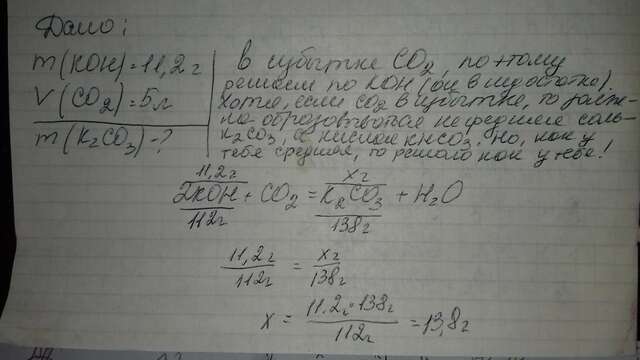 Дано:
m(KOH)=11,2г
V(CO2)=5л
m(K2CO3)-?
В избытке CO2, поэтому
решаем по KOH (он в недостатке)
Хотя, если CO2 в избытке, то долж-
на образовываться не средняя соль-
K2CO3, а кислая KHCO3. Но, как у
тебя средняя, то решаю как у тебя!
11,2г xг
2KOH + CO2 = K2CO3 + H2O
112г 138г
11,2г = xг
112г 138г
x = 11,2г·138г = 13,8г
112г